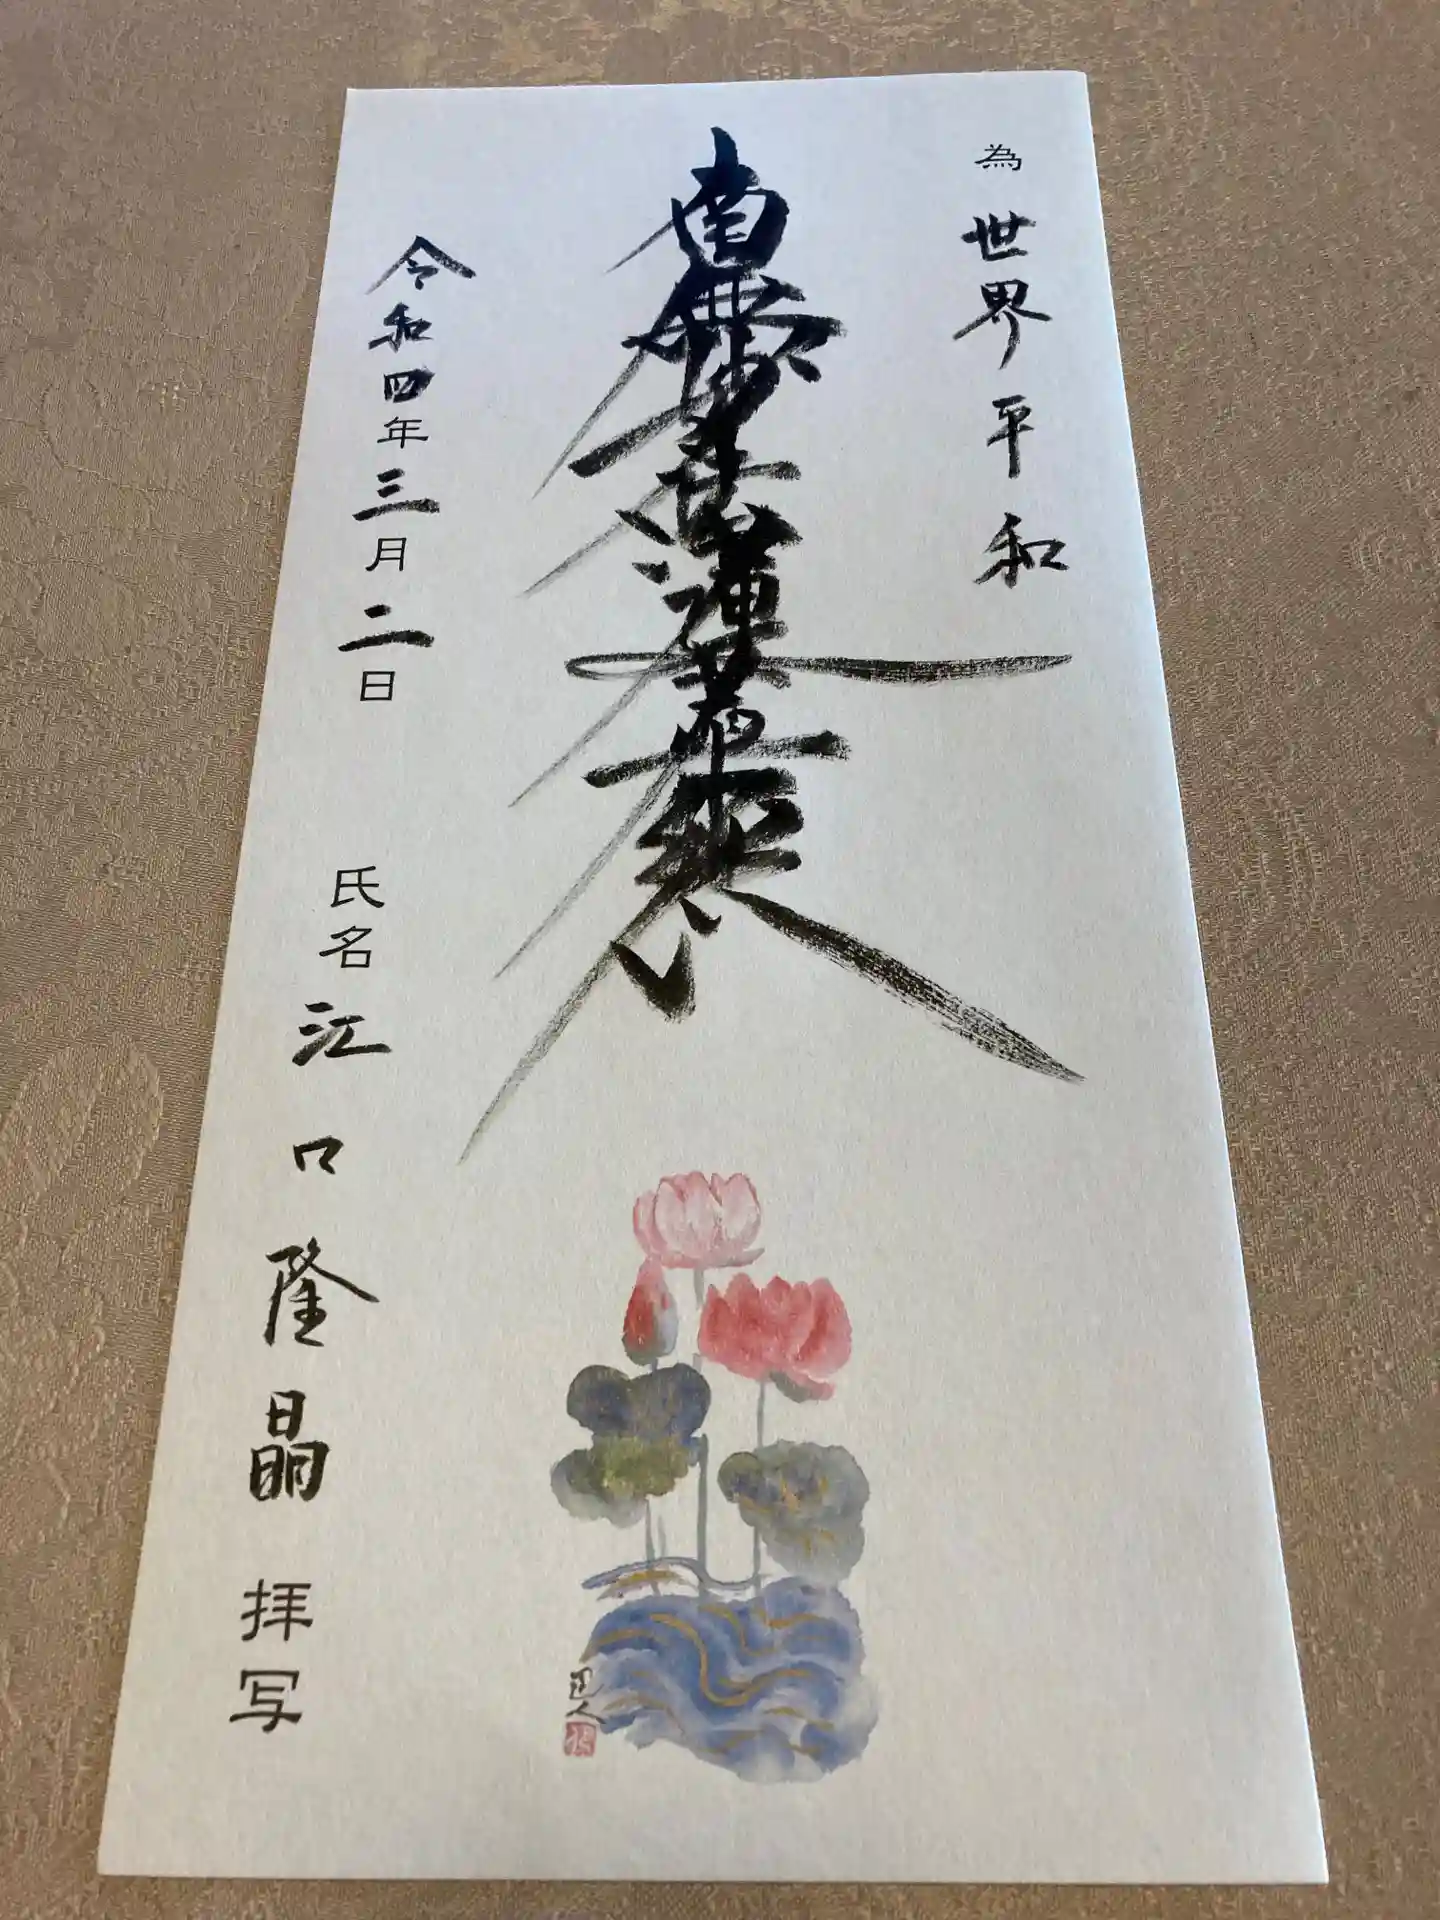 為 世界平和
南無妙法蓮華経
令和四年三月二日 氏名 江口隆晶 拝写